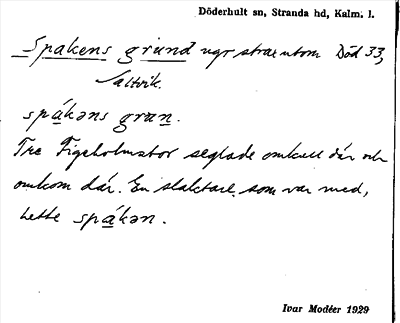 Döderhult sn, Stranda hd, Kalm. l.
Spakens grund ngr strax utom Död 33,
Saltvik.
spákəns grun.
Tre Figeholmsbor seglade omkull där och
omkom där. En slaktare, som var med,
hette spákən.
Ivar Modéer 1929